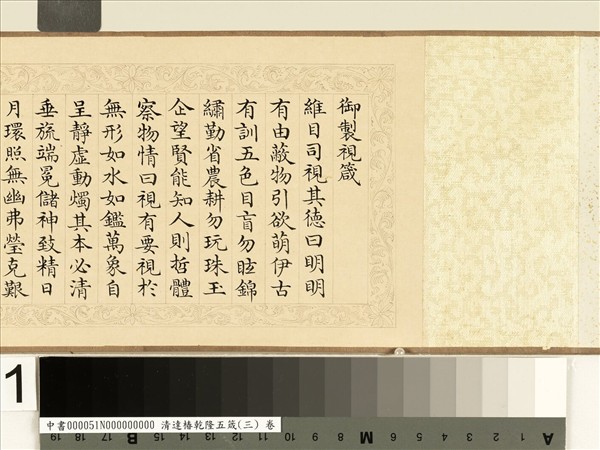 御製視箴
維目司視其德曰明明
有由蔽物引欲萌伊古
有訓五色目盲勿眩錦
繡勤省農耕勿玩珠玉
企望賢能知人則哲體
察物情曰視有要視於
無形如水如鑑萬象自
呈靜虛動燭其本必清
垂旒端冕儲神致精日
月環照無幽弗瑩克艱
1
中書000051N000000000 清達椿乾隆五箴(三) 卷
19 18 17 B 16 15 14 13 12 11 10 9 8 M 7 6 5 4 3 2 A 1